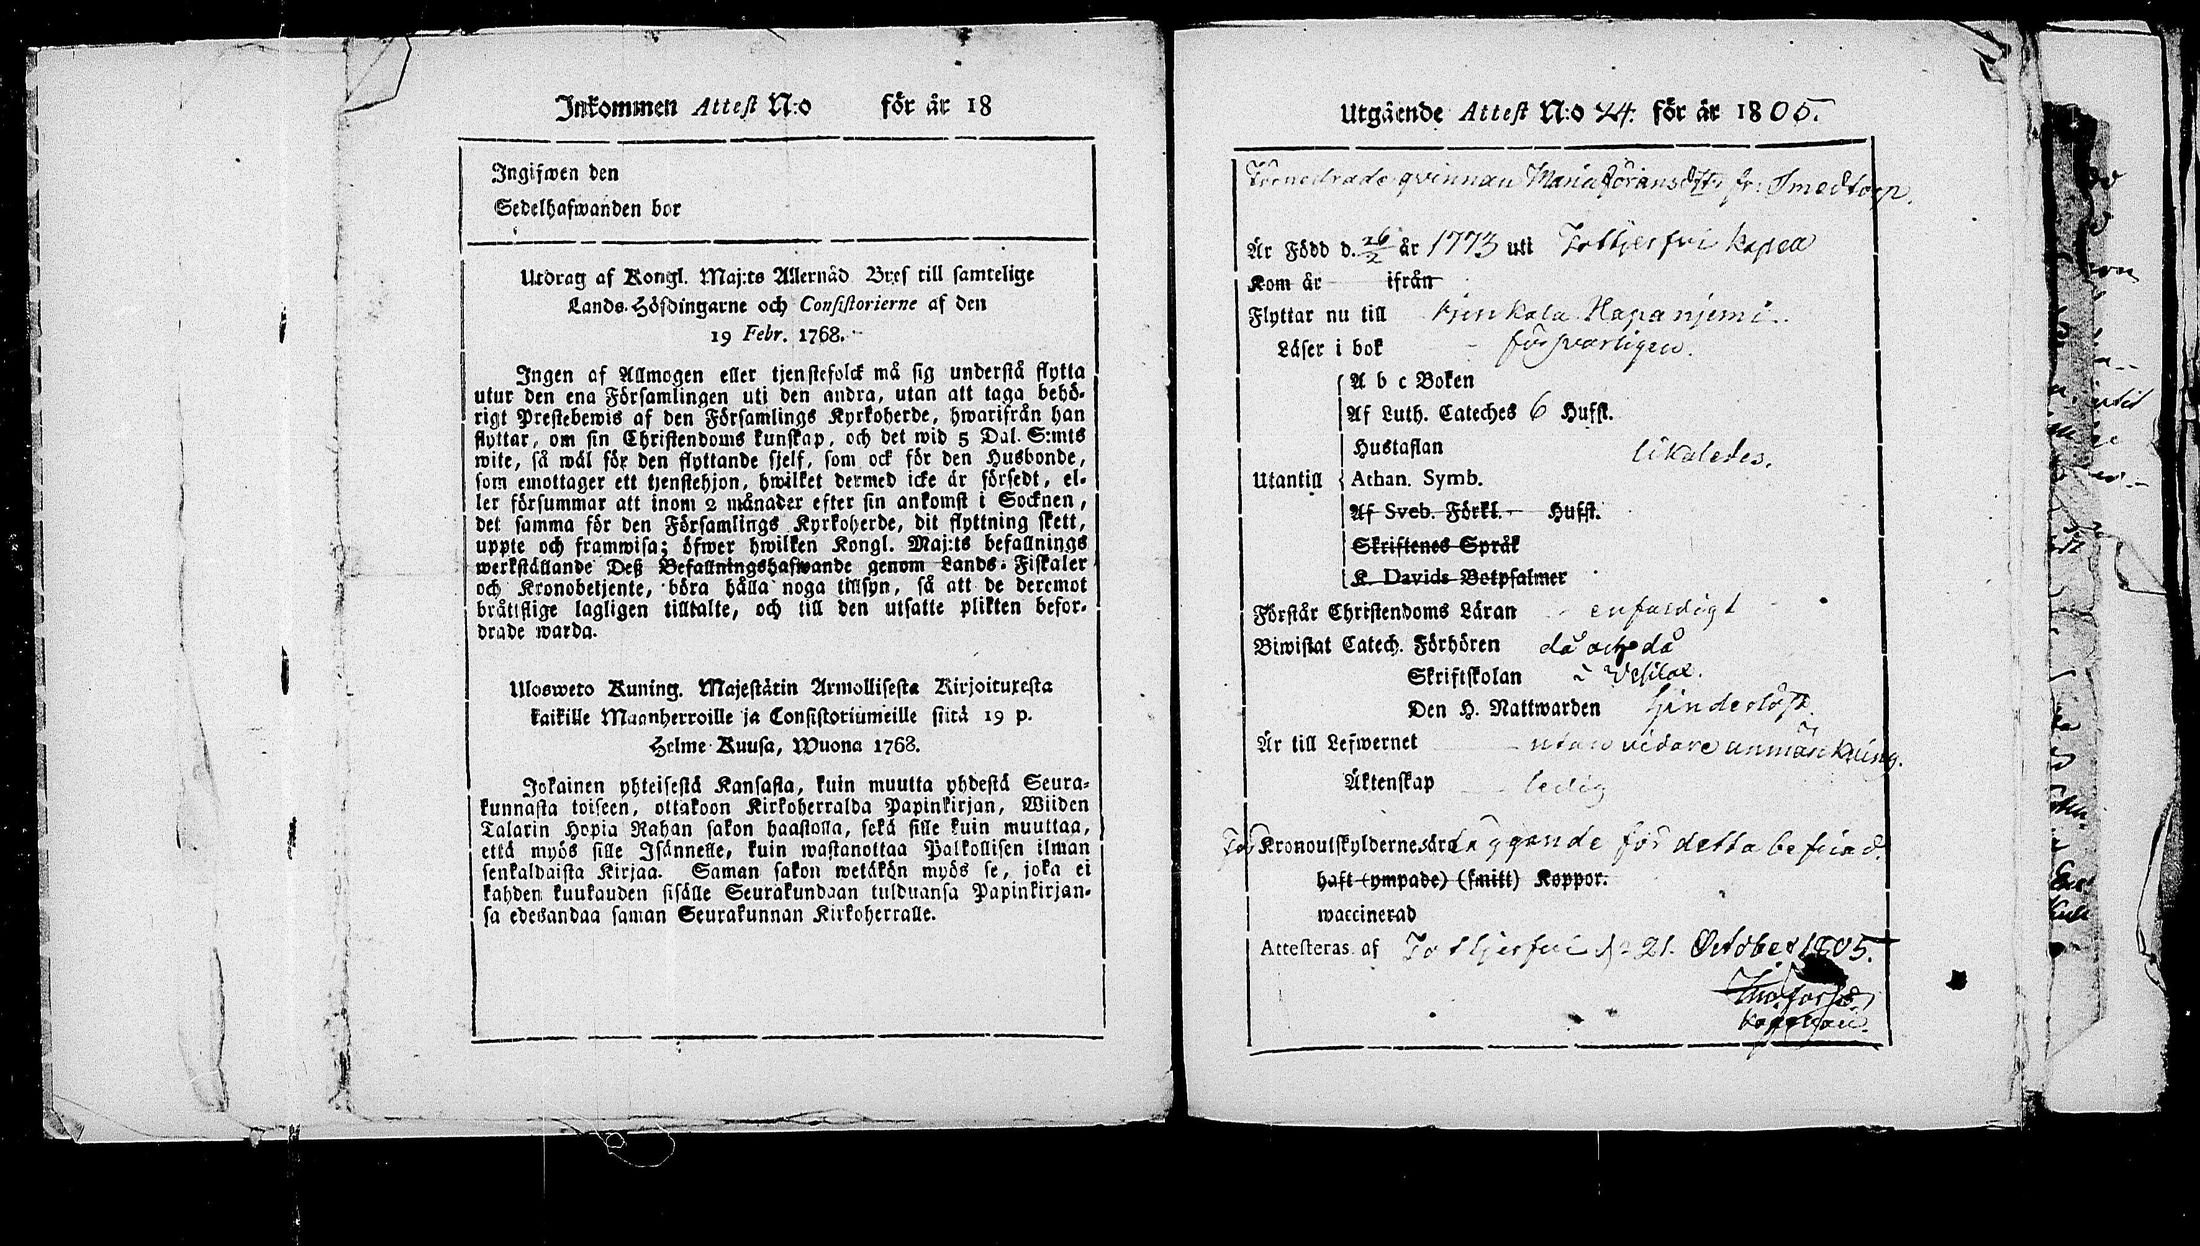 Inkommen Attest N:o för år 18
Ingifwen den
Sedelhafwanden bor
Utdrag af Kongl. Maj:ts Allernåd Bref till samtelige
Lands-Höfdingarne och Consistorierne af den
19 Febr. 1768.
Ingen af Allmogen eller tjenstefolck må sig understå flytta
utur den ena Församlingen uti den andra, utan att taga behö-
rigt Prestebewis af den Församlings Kyrkoherde, hwarifrån han
flyttar, om sin Christendoms kunskap, och det wid 5 Dal. S:mts
wite, så wäl för den flyttande sjelf, som ock för den Husbonde,
som emottager ett tjenstehjon, hwilket dermed icke är försedt, el-
ler försummar att inom 2 månader efter sin ankomst i Socknen,
det samma för den Församlings Kyrkoherde, dit flyttning skett,
uppte och framwisa; öfwer hwilken Kongl. Maj:ts befallnings
werkställande Deß Befallningshafwande genom Lands-Fiskaler
och Kronobetjente, böra hålla noga tillsyn, så att de deremot
bråtislige lagligen tilltalte, och till den utsatte plikten befor-
drade warda.
Ulosweto Kuning. Majestätin Armollisesta Kirjoituxesta
kaikille Maanherroille ja Consistoriumeille siitä 19 p.
Helme-Kuusa, Wuona 1768.
Jokainen yhteisestä Kansasta, kuin muutta yhdestä Seura-
kunnasta toiseen, ottakoon Kirkoherralda Papinkirjan, Wiiden
Talarin Hopia Rahan sakon haastolla, sekä sille kuin muuttaa,
että myös sille Isännelle, kuin wastanottaa Palkollisen ilman
senkaldaista Kirjaa. Saman sakon wetäkön myös se, joka ei
kahden kuukauden sisälle Seurakundaan tulduansa Papinkirjan-
sa edesandaa saman Seurakunnan Kirkoherralle.
Utgående Attest N:o 24. för år 1805.
qvinnan Maria Göransdtr fr. Smedtorp.
Är Född d. 26/2 år 1773 uti Tottjerfvi kapell
Kom år ifrån
Flyttar nu till Kjulkala Hapanjemi.
Läser i bok försvarligen.
A b c Boken
Af Luth. Cateches 6 Hufst.
Hustaflan likaledes.
Utantill Athan. Symb.
Af Sveb. Förkl. Hufst.
Skriftenes Språk
K. Davids Botpsalmer
Förstår Christendoms Läran enfaldigt
Biwistat Catech. Förhören då och då
Skriftskolan i Vesilax.
Den H. Nattwarden hinderlöst
Är till Lefwernet utan vidare anmärkning.
Äktenskap ledig
Kronoutskyldernes för detta befriad.
haft (ympade) (smitt) Koppor.
waccinerad
Attesteras af Tottjerfvi d. 21. October 1805.